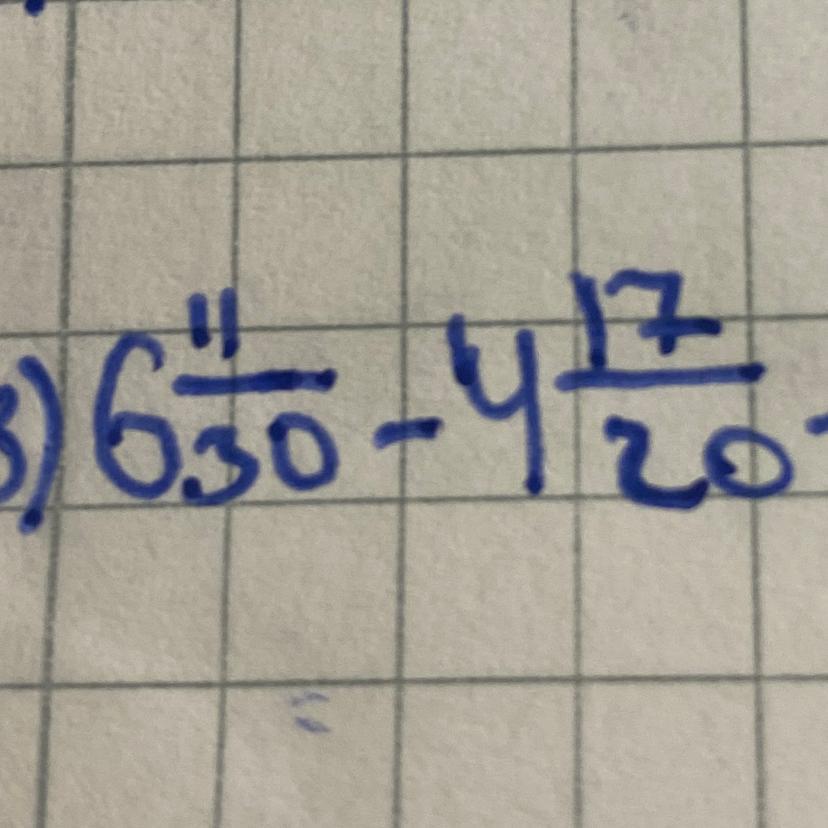 3) 6 11/30 - 4 17/20